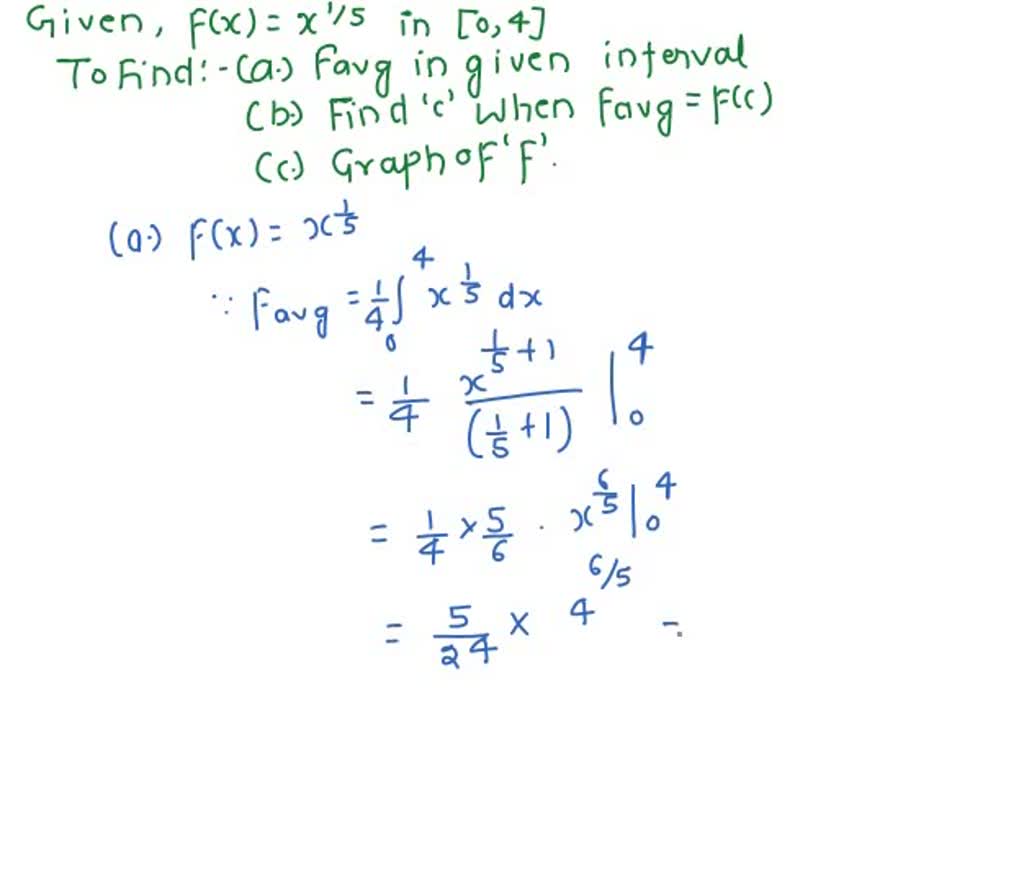 Given, F(x) = x^1/5 in [0,4]
To Find:- (a.) Favg in given interval
(b.) Find 'c' when Favg = F(c)
(c.) Graph of 'F'.
(a.) F(x) = x^1/5
∵ Favg = 1/4 ∫₀⁴ x^1/5 dx
= 1/4 x^(1/5+1)/(1/5+1) |₀⁴
= 1/4 × 5/6 · x^6/5 |₀⁴
= 5/24 × 4^6/5 =